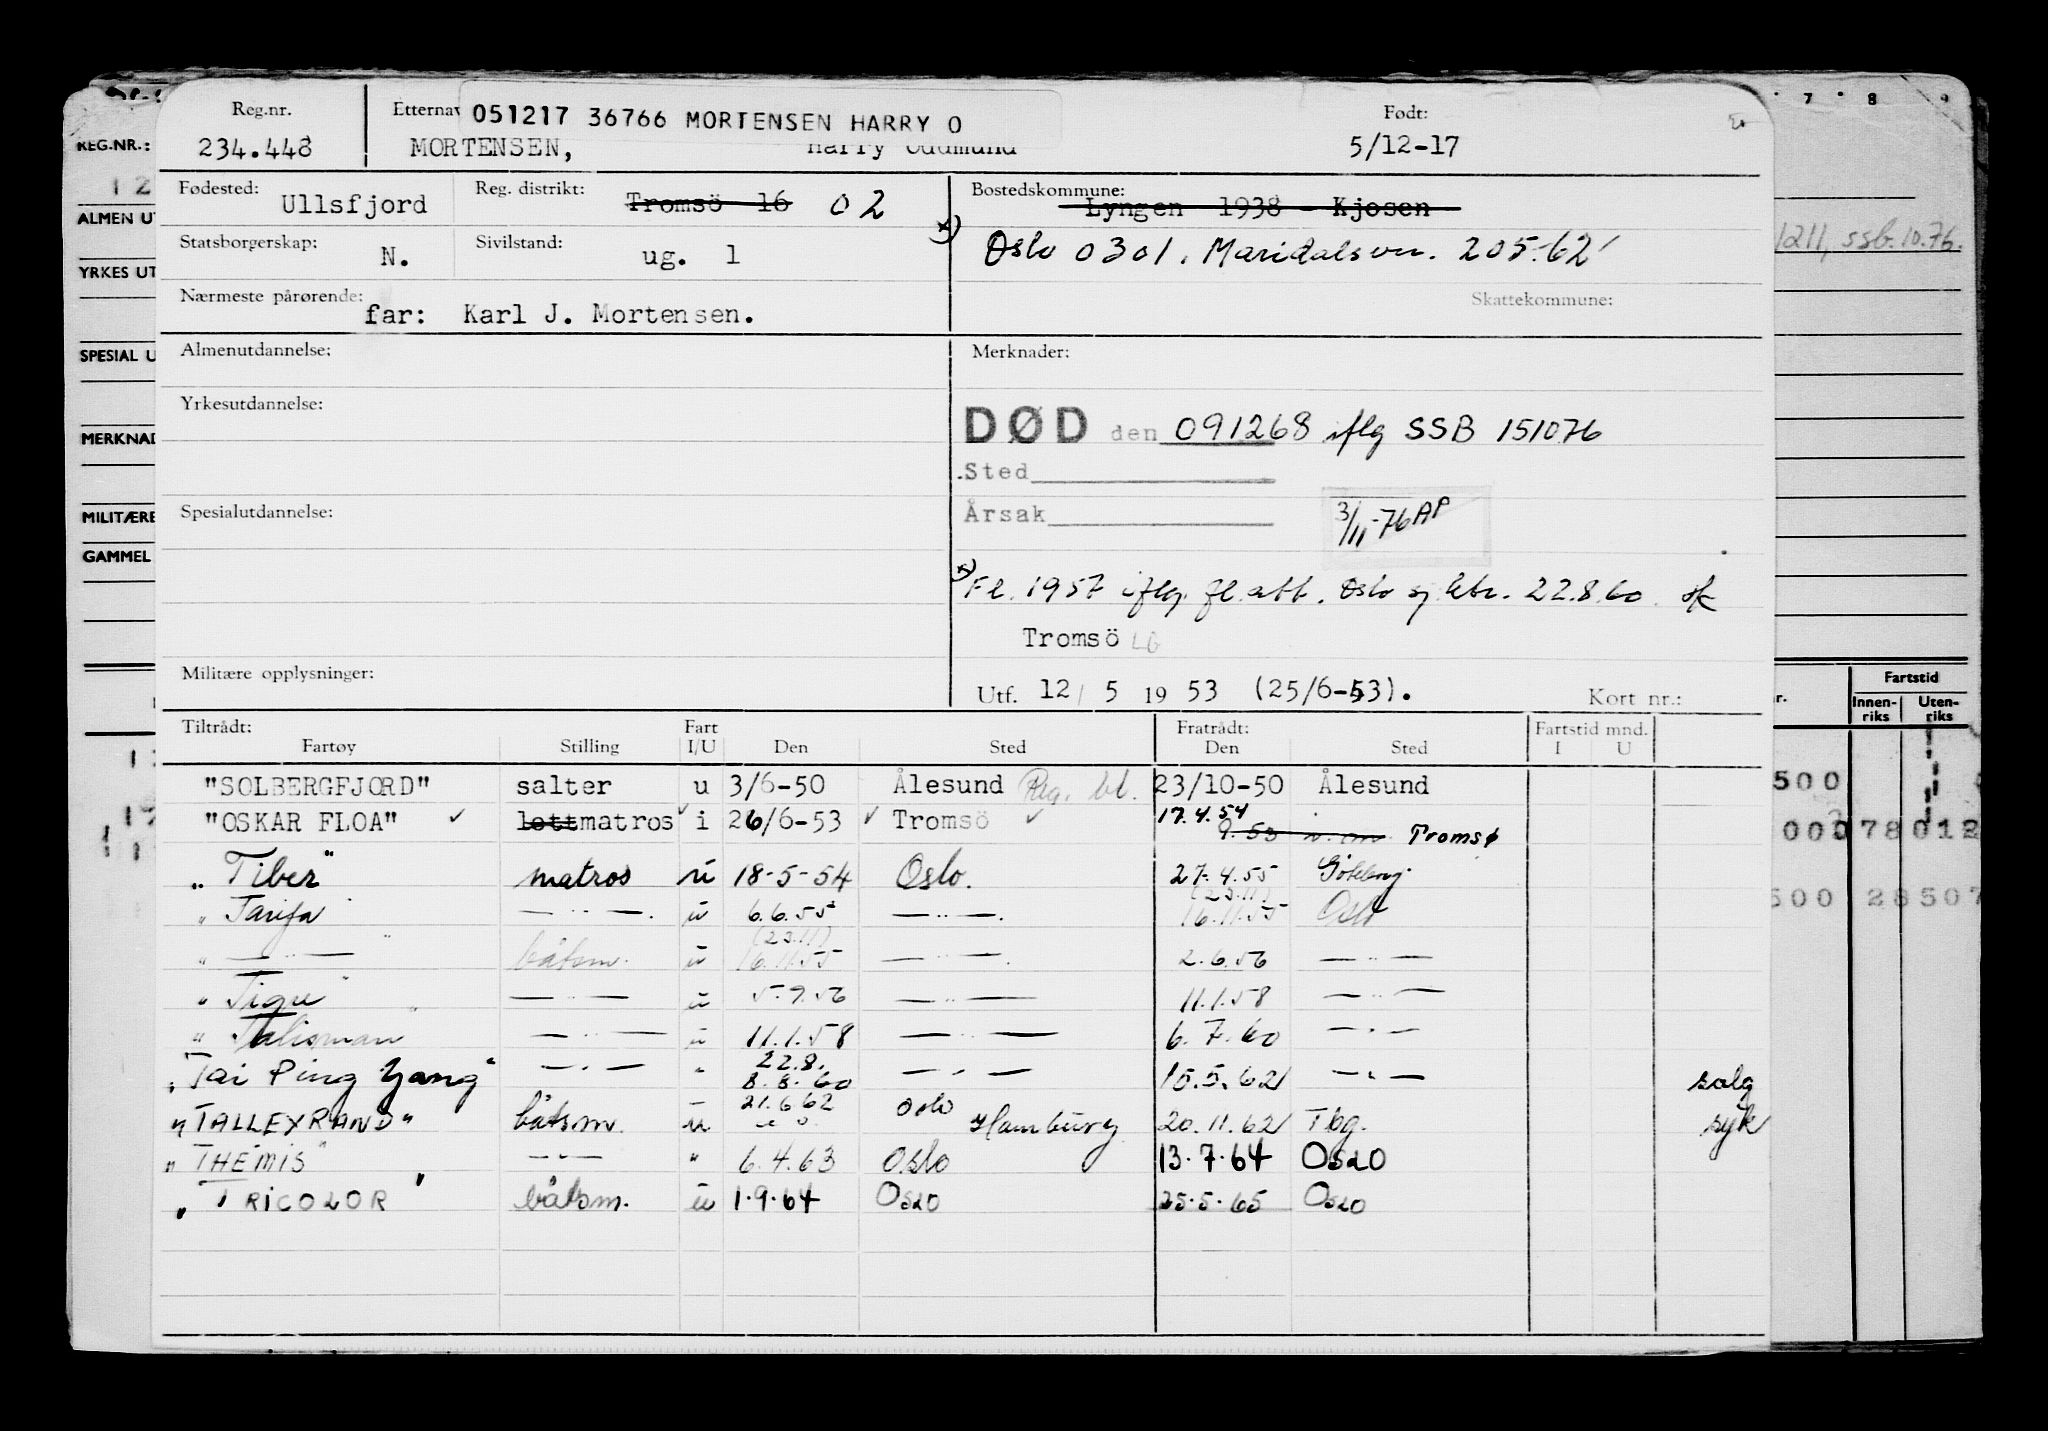 Reg.nr. Etternav 051217 36766 MORTENSEN HARRY O Født:
234.448 MORTENSEN, Harry Oddmund 5/12-17
Fødested: Ullsfjord Reg. distrikt: Tromsö 16 02 Bostedskommune: Lyngen 1938 - Kjosen
Statsborgerskap: N. Sivilstand: ug. 1 x) Oslo 0301. Maridalsvn. 205-62
Nærmeste pårørende: far: Karl J. Mortensen. Skattekommune:
Almenutdannelse: Merknader:
Yrkesutdannelse: DØD den 091268 iflg SSB 151076
Sted
Spesialutdannelse: Årsak 3/11-76 AP
x) Fl. 1957 iflg. fl.att. Oslo sj.ktr. 22.8.60
Tromsö LG
Militære opplysninger: Utf. 12/5 1953 (25/6-53). Kort nr.:
Tiltrådt: Fart Fratrådt: Fartstid mnd.
Fartøy Stilling I/U Den Sted Den Sted I U
"SOLBERGFJORD" salter u 3/6-50 Ålesund Reg. bl. 23/10-50 Ålesund
"OSKAR FLOA" ✓ lettmatros ✓ i 26/6-53 ✓ Tromsö ✓ 17.4.54 9.53 Tromsø
"Tiber" matros u 18-5-54 Oslo. 27.4.55 Göteborg
"Tarifa" — " —. u 6.6.55 — " —. (23.11) 16.11.55 Oslo
" — " — " båtsm. u (23.11) 16.11.55 — " —. 2.6.56 — " —
"Tigre" — " — u 5.9.56 — " — 11.1.58 — " —
"Talisman" — " — u 11.1.58 — " — 6.7.60 — " —
"Tai Ping Yang" — " — " 22.8. 8.8.60 — " — 15.5.62 — " — salg
"TALLEYRAND" båtsm. u 21.6.62 Oslo Hamburg 20.11.62 Tbg. syk
"THEMIS" — " — " 6.4.63 Oslo 13.7.64 OSLO
"TRICOLOR" båtsm. u 1.9.64 OSLO 25.5.65 OSLO
REG.NR.:
12
ALMEN UT
YRKES UT
SPESIAL U
MERKNAD
MILITÆRE
GAMMEL
7 8 9
1211, ssb. 10.76.
Fartstid
Innen-riks Uten-riks
500
000 78 012
500 28507